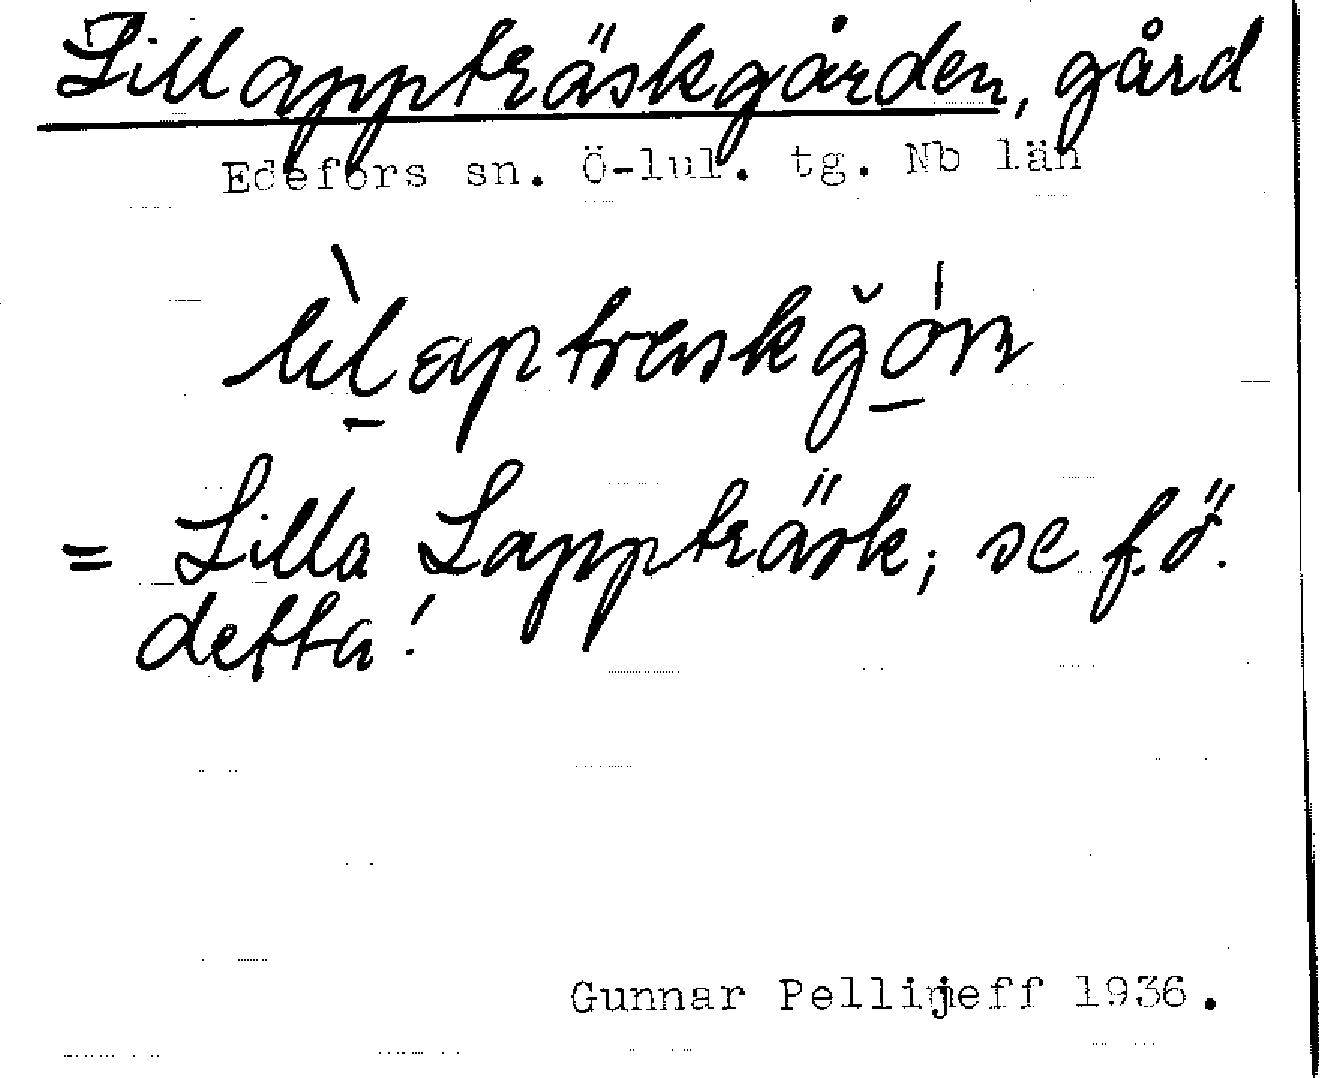 Lillappträskgården, gård
Edefors sn. Ö-lul. tg. Nb län
= Lilla Lappträsk; se f.ö.
detta!
Gunnar Pellijeff 1936.